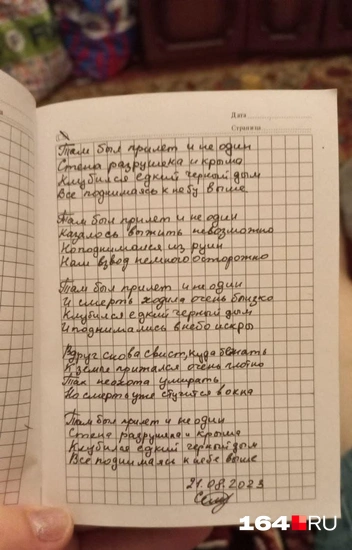 Дата
Страница
Там был прилет и не один
Стена разрушена и крыша
Клубился едкий черный дым
Все поднимаясь к небу выше
Там был прилет и не один
Казалось выжить невозможно
Но поднимался из руин
Наш взвод немного осторожно
Там был прилет и не один
И смерть ходила очень близко
Клубился едкий черный дым
И поднимались в небо искры
Вдруг снова свист, куда бежать
К земле прижался очень плотно
Так неохота умирать
Но смерть уже стучится в окна
Там был прилет и не один
Стена разрушена и крыша
Клубился едкий черный дым
Все поднимаясь к небе выше
21.08.2023
164 RU